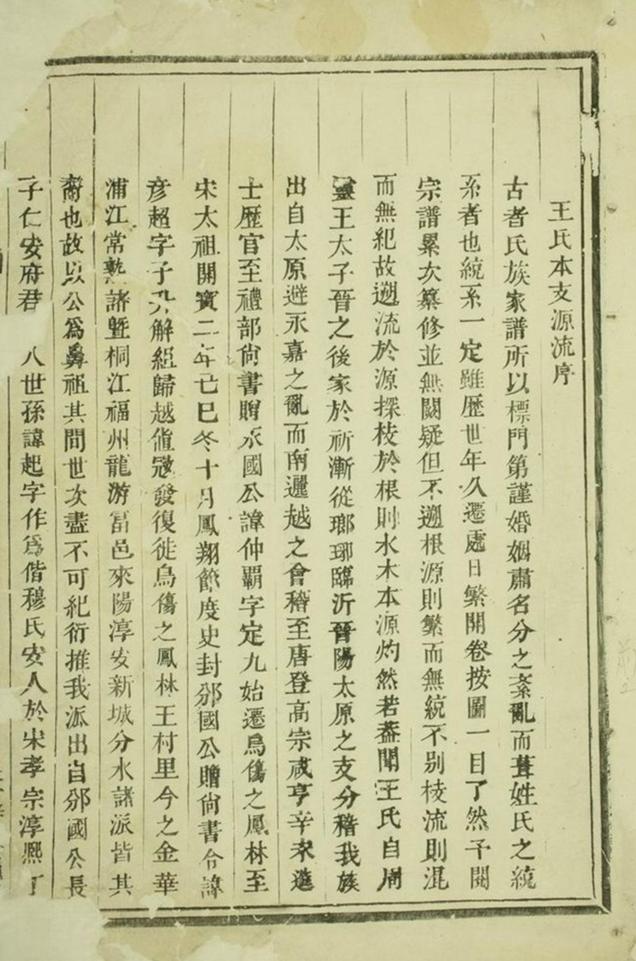 王氏本支源流序
古者氏族家譜所以標門第謹婚姻肅名分之紊亂而葺姓氏之統
系者也統系一定雖歷世年久遷處日繁開卷按圖一目了然予閱
宗譜累次纂修並無闕疑但不遡根源則繁而無統不別棱流則混
而無紀故遡流於源探枝於根則水木本源灼然若蓋聞王氏自周
靈王太子晉之後家於祈漸從瑯琊臨沂晉陽太原之支分稽我族
出自太原避永嘉之亂而南遷越之會稽至唐登高宗咸亨辛未進
士歷官至禮部尚書贈永國公諱仲霸字定九始遷烏傷之鳳林至
宋太祖開寶二年己巳冬十月鳳翔節度史封邠國公贈尚書令諱
彥超字子升解組歸越値冦發復徙烏傷之鳳林王村里今之金華
浦江常熟諸暨桐江福州龍游富邑來陽淳安新城分水諸派皆其
裔也故以公為鼻祖其間世次盡不可紀衍推我派出自邠國公長
子仁安府君 八世孫諱起字作為偕穆氏安人於宋孝宗淳熙丁